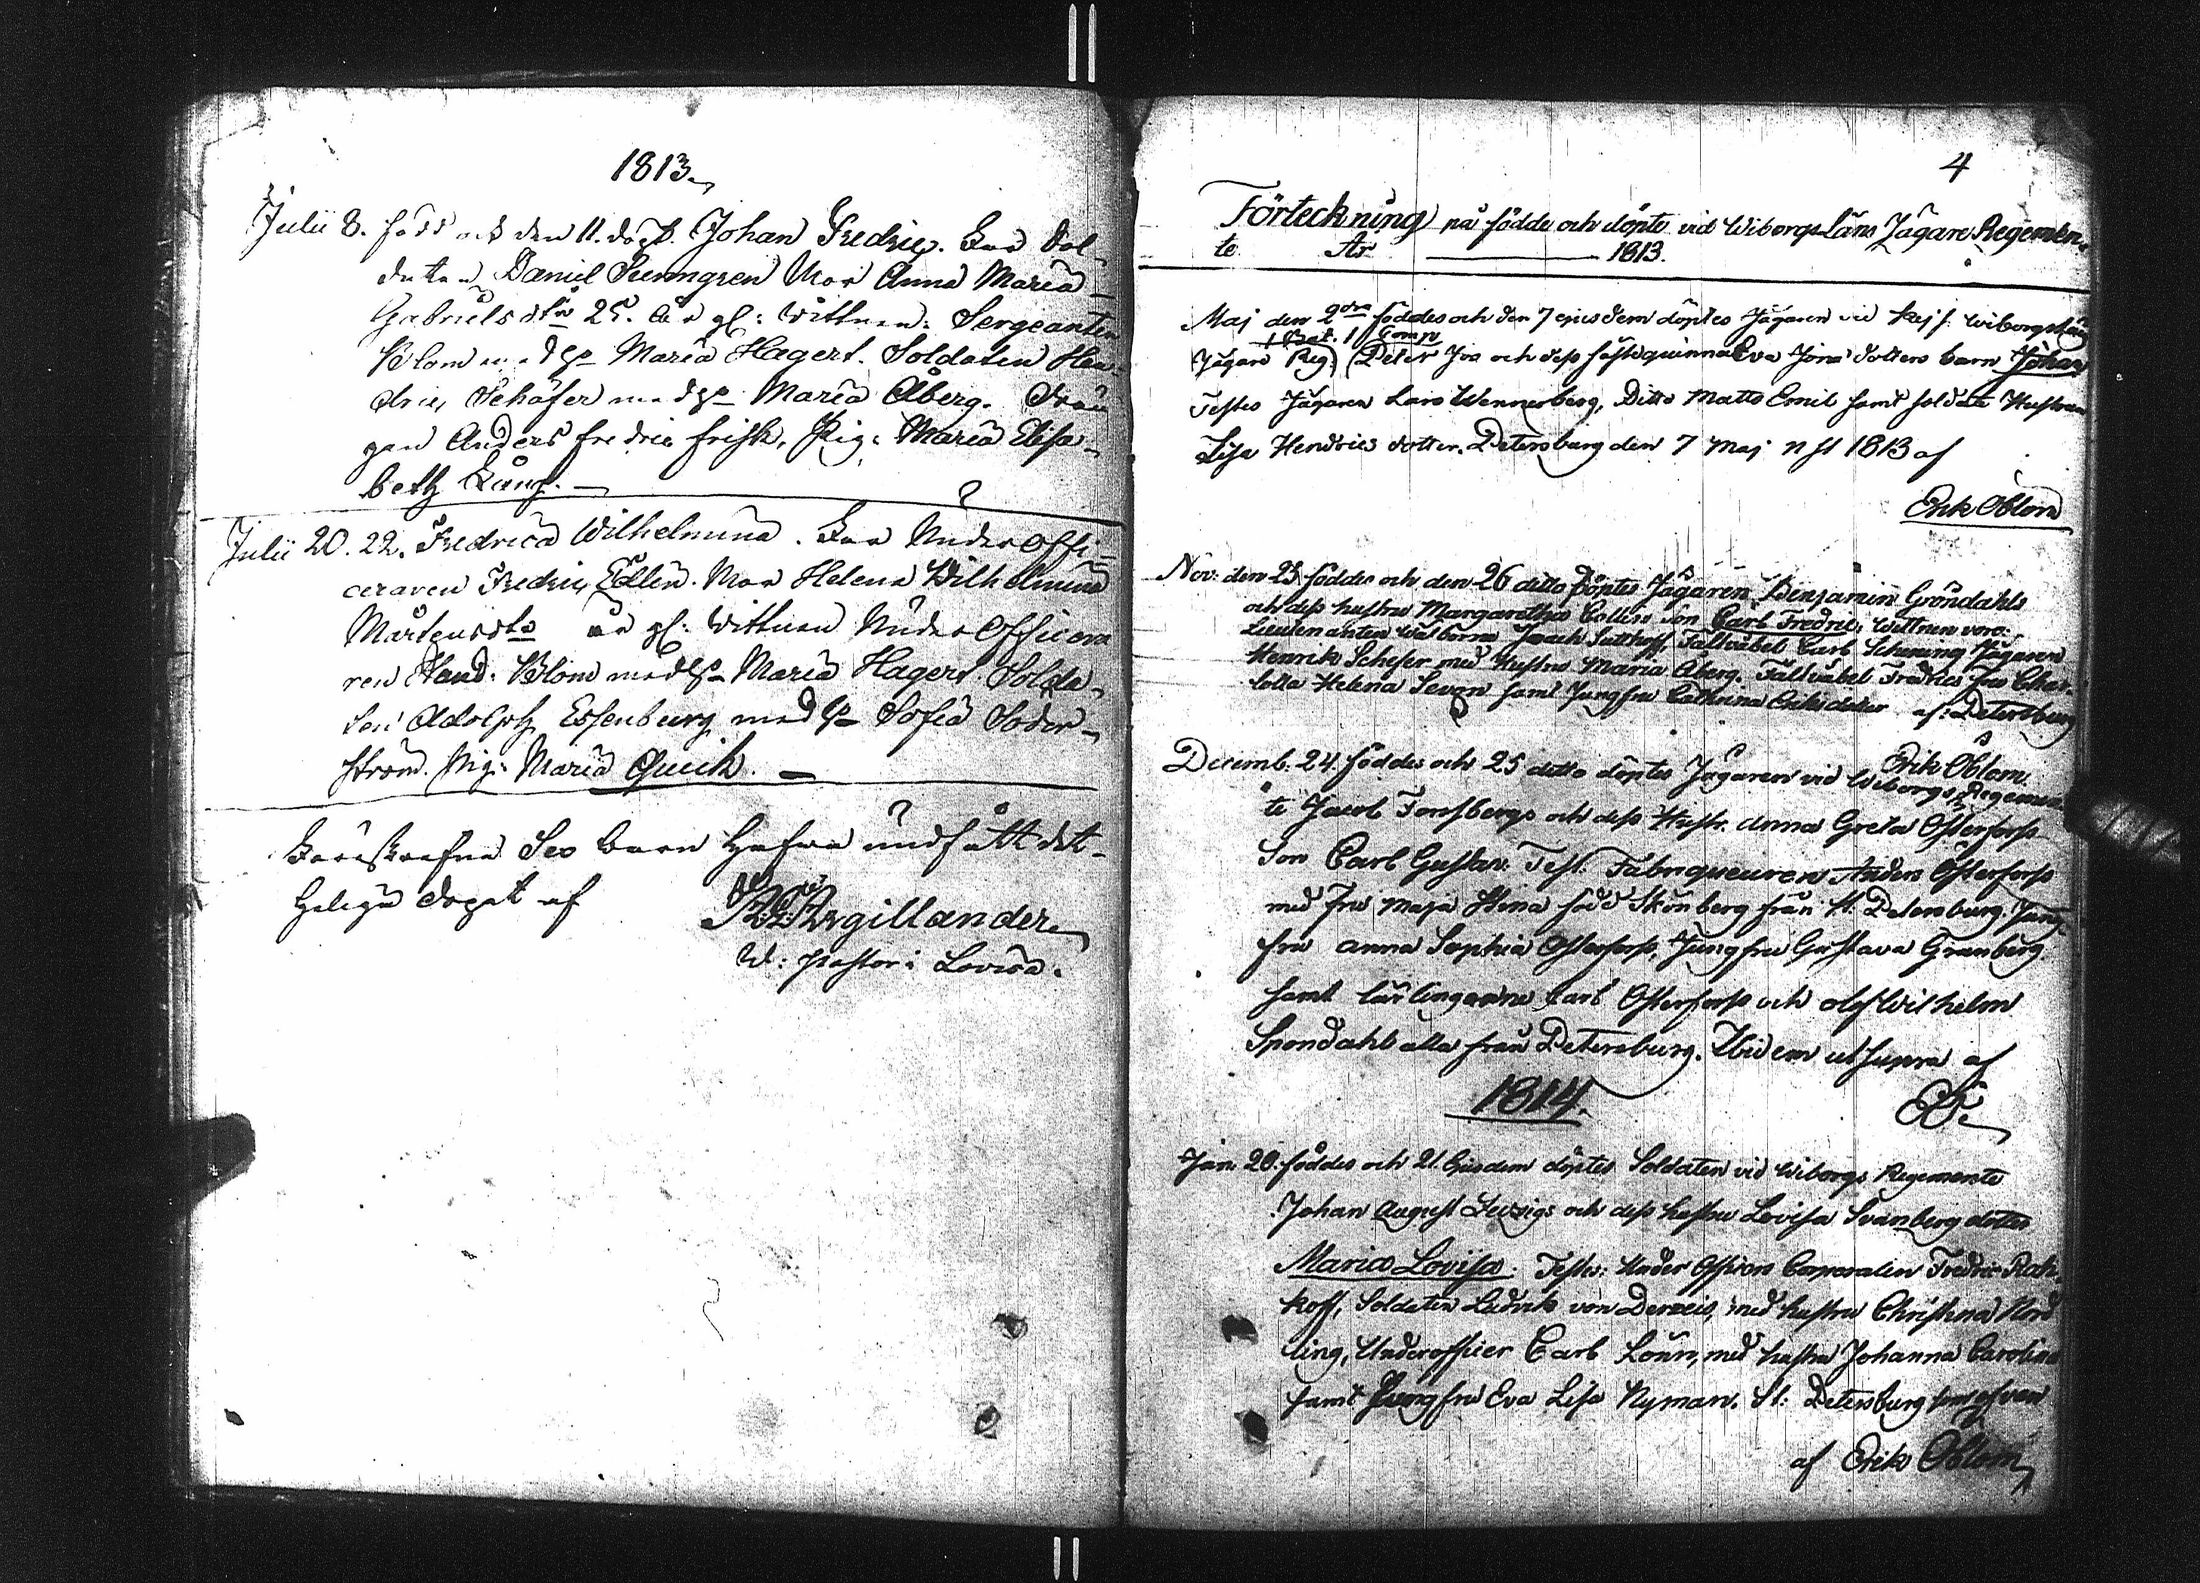 1813.
Julii 8. född och den 11. döpt. Johan Fredric. Far Sol-
daten Daniel Sunngren Mor Anna Maria
Gabrielsdtr 25. år gl: Wittnen: Sergeanten
Blom med Maria Hagert. Soldaten Hen-
dric Schäfer med Maria Åberg. Drän
gen Anders Fredric Frisk, Pig: Maria Elisa-
beth Lång.
Julii 20. 22. Fredrica Wilhelmina. Far Under Offi-
ceraren Fredric Edlin. Mor Helena Wilhelmina
Mårtensdtr år gl: Wittnen Under Officera
ren Hand: Blom med Maria Hagert Solda-
ten Adolph Essenburg med Sofia Söder-
ström. Pig: Maria Quick.
Föreskrefne Sex barn hafva undfått det
Heliga dopet af
Argillander
W: Pastor i Lovisa.
4
Förteckning på födde och döpte vid Wiborgs Läns Jägare Regemen-
te År 1813.
Maj den 2dra föddes och den 7 ejusdem döptes Jägaren vid Kejs. Wiborgs Läns
1 Bat. 1 Comp
Jägare Reg. Peter Joa och dess hustru quinna Eva Jöns dotters barn Johan
Testes Jägaren Lars Wennerberg, Ditto Matts Emil samt soldate Hustrun
Lisa Hendrics dotter. Petersburg den 7 Maj n st 1813 af
Erik Öblom
Nov: den 23 föddes och den 26 ditto döptes Jägaren Benjamin Gröndahls
och dess hustru Margaretha Collin son Carl Fredric; Wittnen voro:
Lieutenanten Jaach Fältväbel Carl Schering Jägaren
Henrik Schefer med Hustru Maria Åberg. Fältväbel Fredrics Fru Char-
lotta Helena Sevon samt Jungfru Cathrina Eriksdotter af: Petersburg
Erik Öblom.
Decemb. 24. föddes och 25 ditto döptes Jägaren vid Wiborgs Regemen-
te Jacob Forssbergs och dess Hustr. Anna Greta Österforss
Son Carl Gustav: Test: Fabriqueuren Anders Österforss
med Fru Maja Stina född Skönberg från St. Petersburg. Jung-
fru Anna Sophia Österforss, Jungfru Gustava Granberg
samt lärlingarne Carl Österforss och Olof Wilhelm
Spondahl alla från Petersburg. Ibidem ut supra af
EÖ.
1814.
Jan. 20. föddes och 21. Ejusdem döptes Soldaten vid Wiborgs Regemente
Johan August Ledvigs och dess hustru Lovisa Svanberg dotter
Maria Lovisa. Testes: Under Officern Corporalen Fredric Rah-
koff, Soldaten Ludvik von Derweis, med hustru Christina Nord
ling, Underofficer Carl Lönn, med hustru Johanna Carolina
samt Jungfru Eva Lisa Nyman. St: Petersburg som ofvan
af Erik Öblom